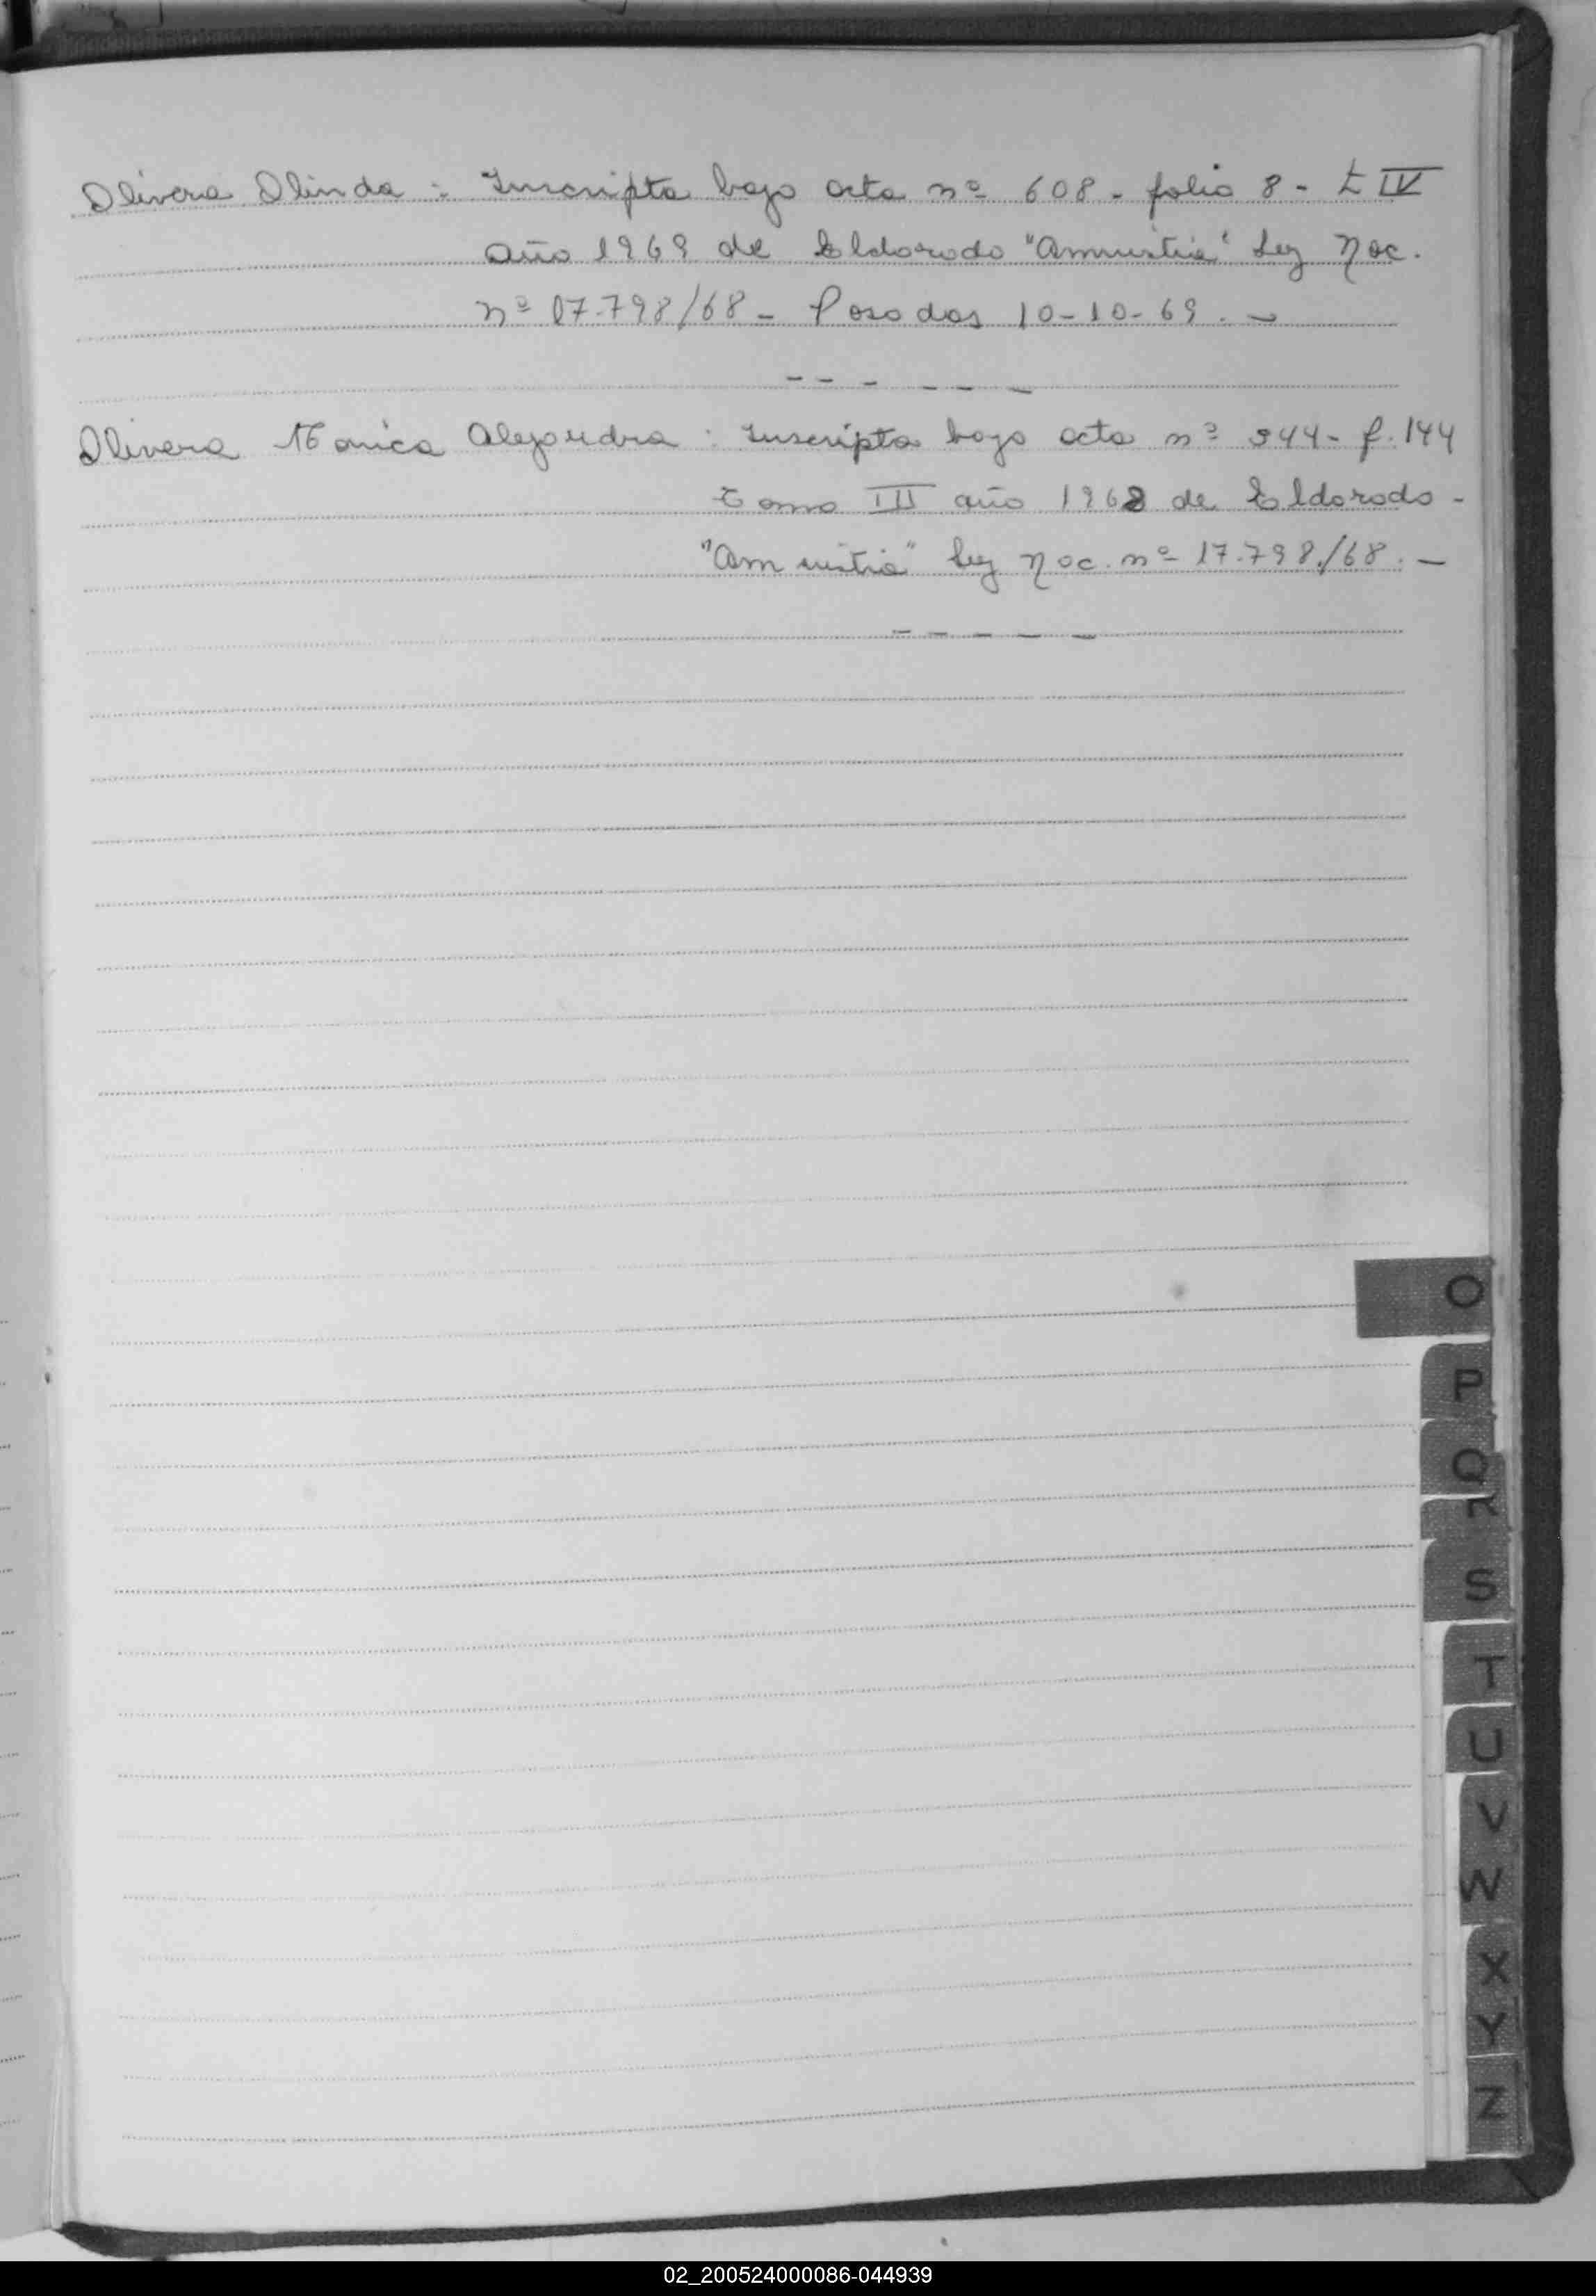 Olivera Olinda : Inscripta bajo acta nº 608 - folio 8 - t IV
año 1969 de Eldorado "Amnistia" Ley Nac.
nº 17.798/68 - Posadas 10-10-69. -
Olivera Monica Alejandra : Inscripta bajo acta nº 944 - f. 144
Tomo III año 1968 de Eldorado -
"Amnistia" Ley Nac. nº 17.798/68. -
O
P
Q
R
S
T
U
V
W
X
Y
Z
02_200524000086-044939